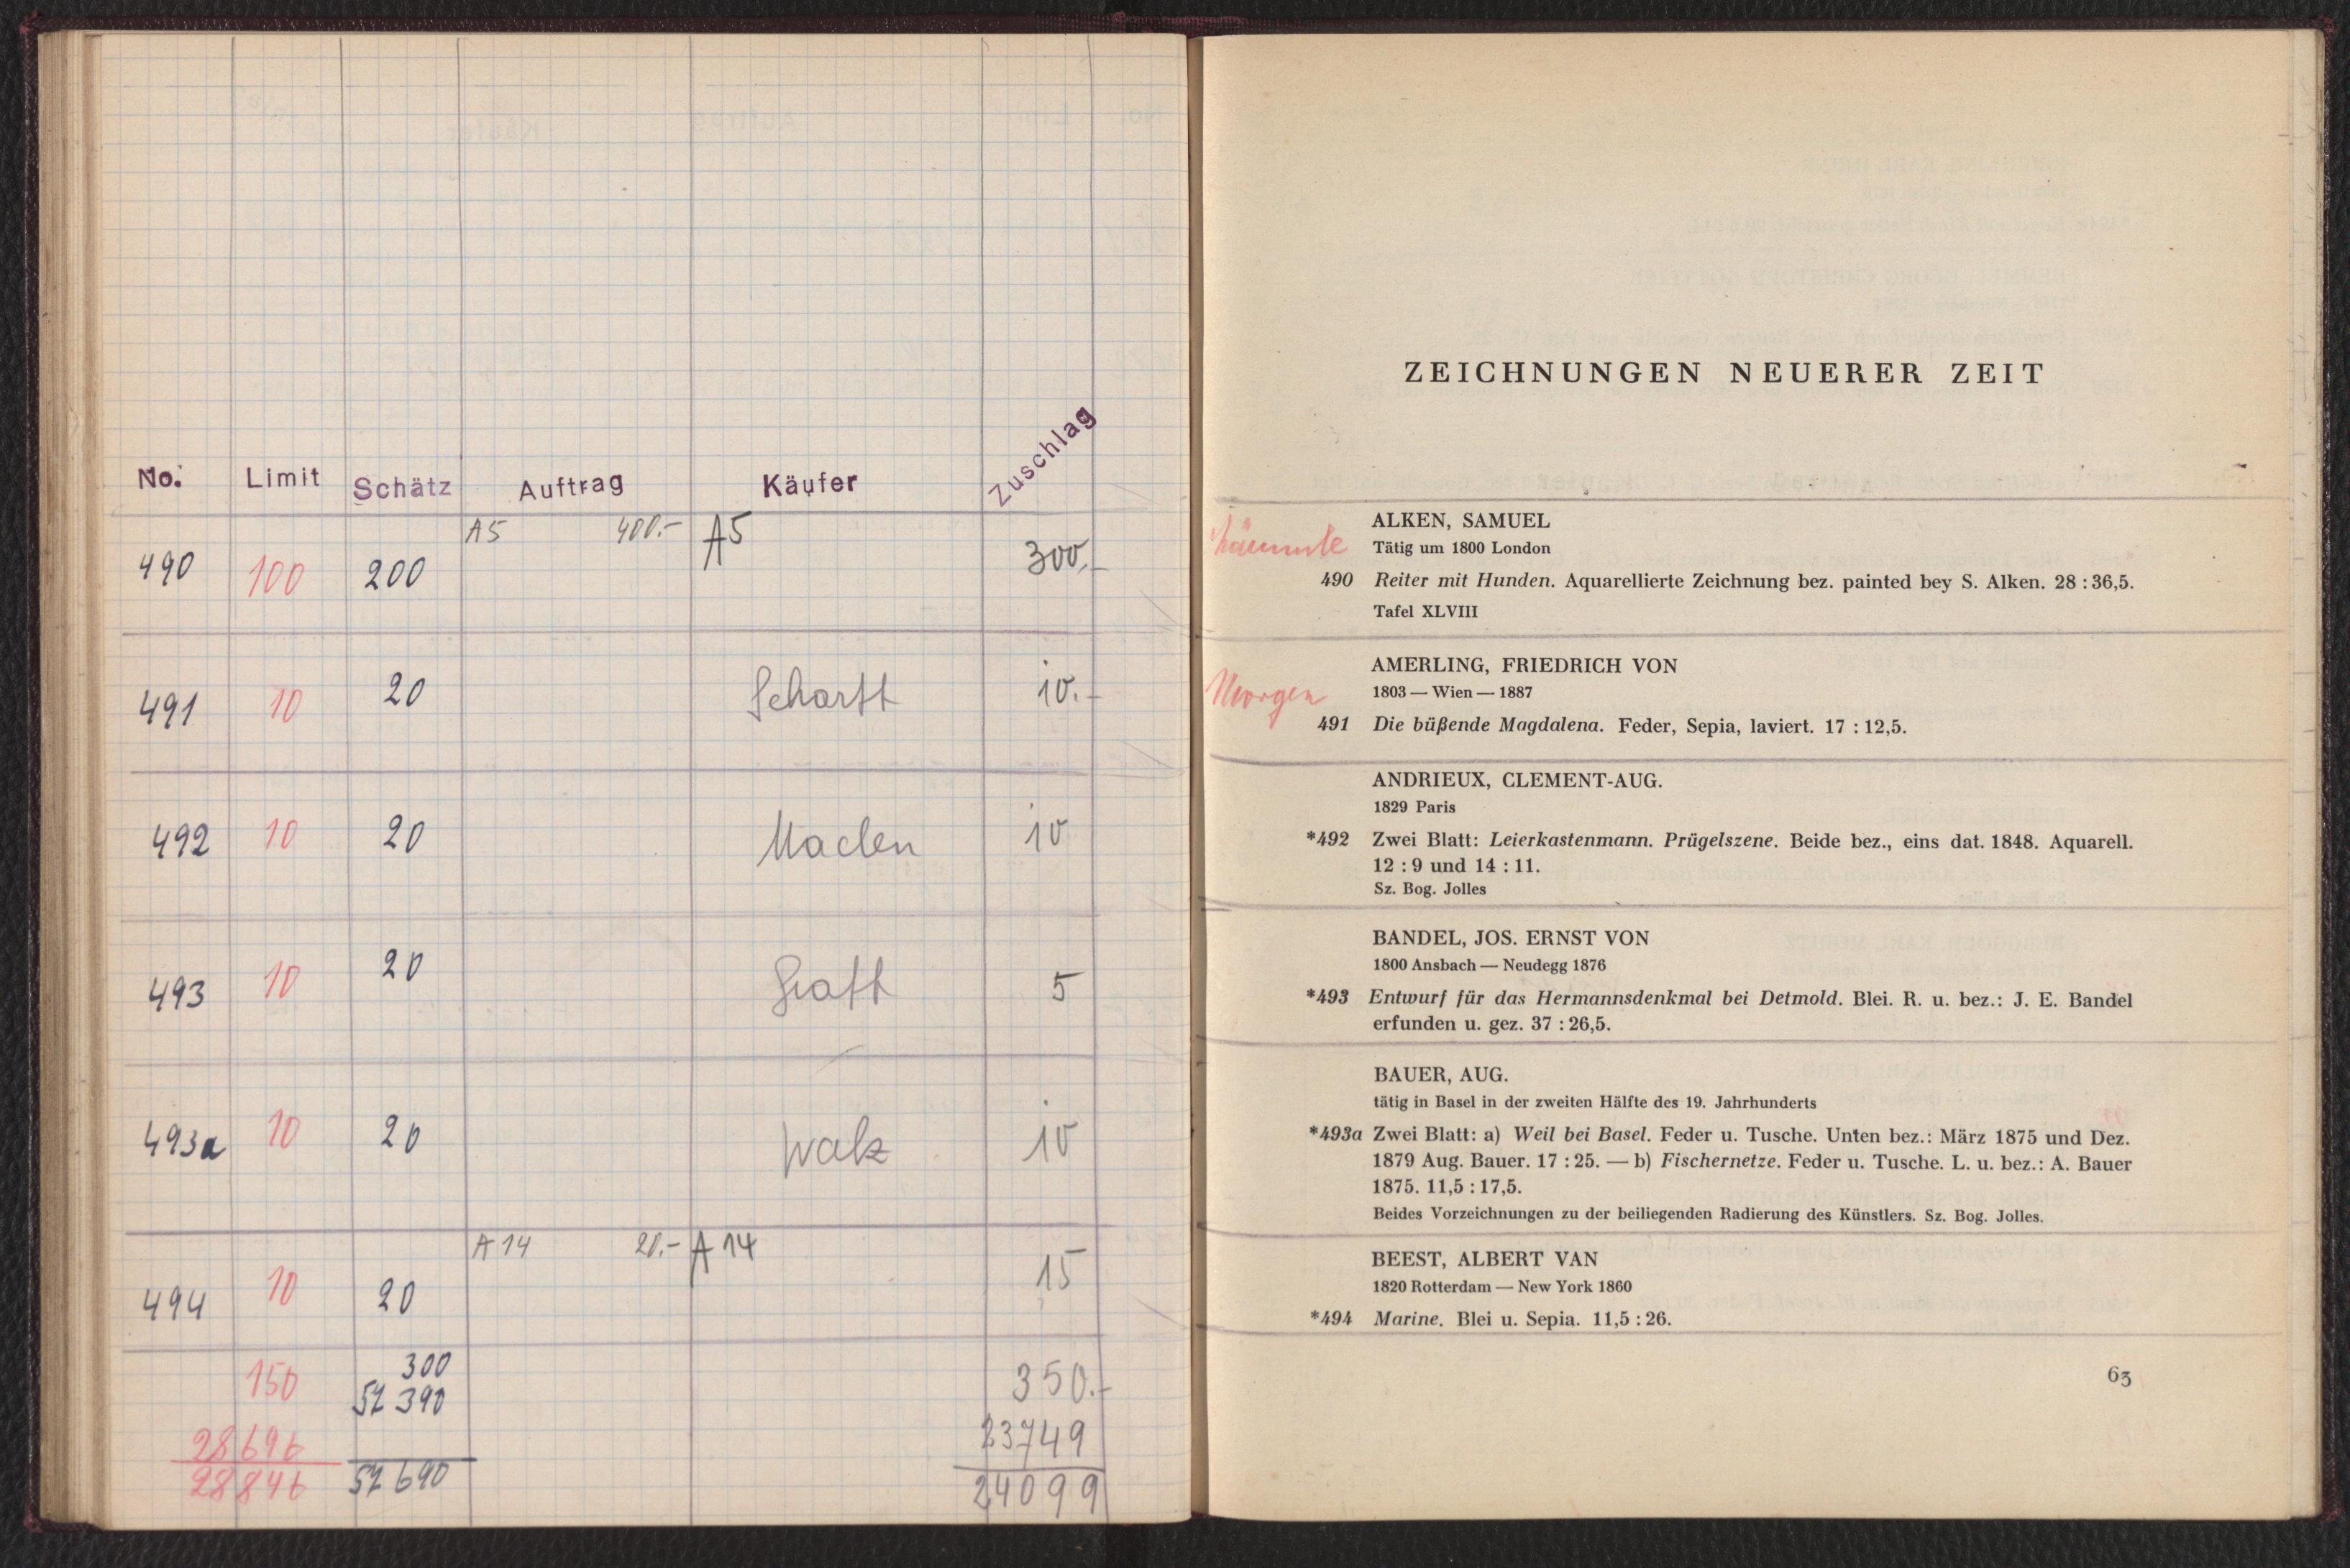 No. Limit Schätz Auftrag Käufer Zuschlag
490 100 200 A5 400.- A5 300.-
491 10 20 Scharff 10.-
492 10 20 10
493 10 20 Graff 5
493a 10 20 Walz 10
494 10 20 A 14 20.- A 14 15
150 300 350.-
390
28696 23749
28846 690 24099
ZEICHNUNGEN NEUERER ZEIT
ALKEN, SAMUEL
Tätig um 1800 London
490 Reiter mit Hunden. Aquarellierte Zeichnung bez. painted bey S. Alken. 28 : 36,5.
Tafel XLVIII
AMERLING, FRIEDRICH VON
Morgen
1803 — Wien — 1887
491 Die büßende Magdalena. Feder, Sepia, laviert. 17 : 12,5.
ANDRIEUX, CLEMENT-AUG.
1829 Paris
*492 Zwei Blatt: Leierkastenmann. Prügelszene. Beide bez., eins dat. 1848. Aquarell.
12 : 9 und 14 : 11.
Sz. Bog. Jolles
BANDEL, JOS. ERNST VON
1800 Ansbach — Neudegg 1876
*493 Entwurf für das Hermannsdenkmal bei Detmold. Blei. R. u. bez.: J. E. Bandel
erfunden u. gez. 37 : 26,5.
BAUER, AUG.
tätig in Basel in der zweiten Hälfte des 19. Jahrhunderts
*493a Zwei Blatt: a) Weil bei Basel. Feder u. Tusche. Unten bez.: März 1875 und Dez.
1879 Aug. Bauer. 17 : 25. — b) Fischernetze. Feder u. Tusche. L. u. bez.: A. Bauer
1875. 11,5 : 17,5.
Beides Vorzeichnungen zu der beiliegenden Radierung des Künstlers. Sz. Bog. Jolles.
BEEST, ALBERT VAN
1820 Rotterdam — New York 1860
*494 Marine. Blei u. Sepia. 11,5 : 26.
63